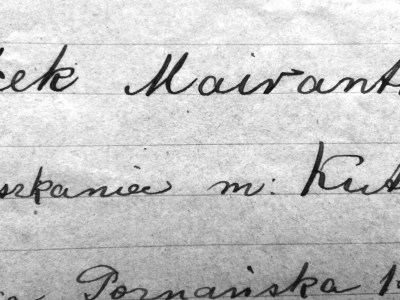 ek Mairant
szkaniec m. Kut
Poznańska 1